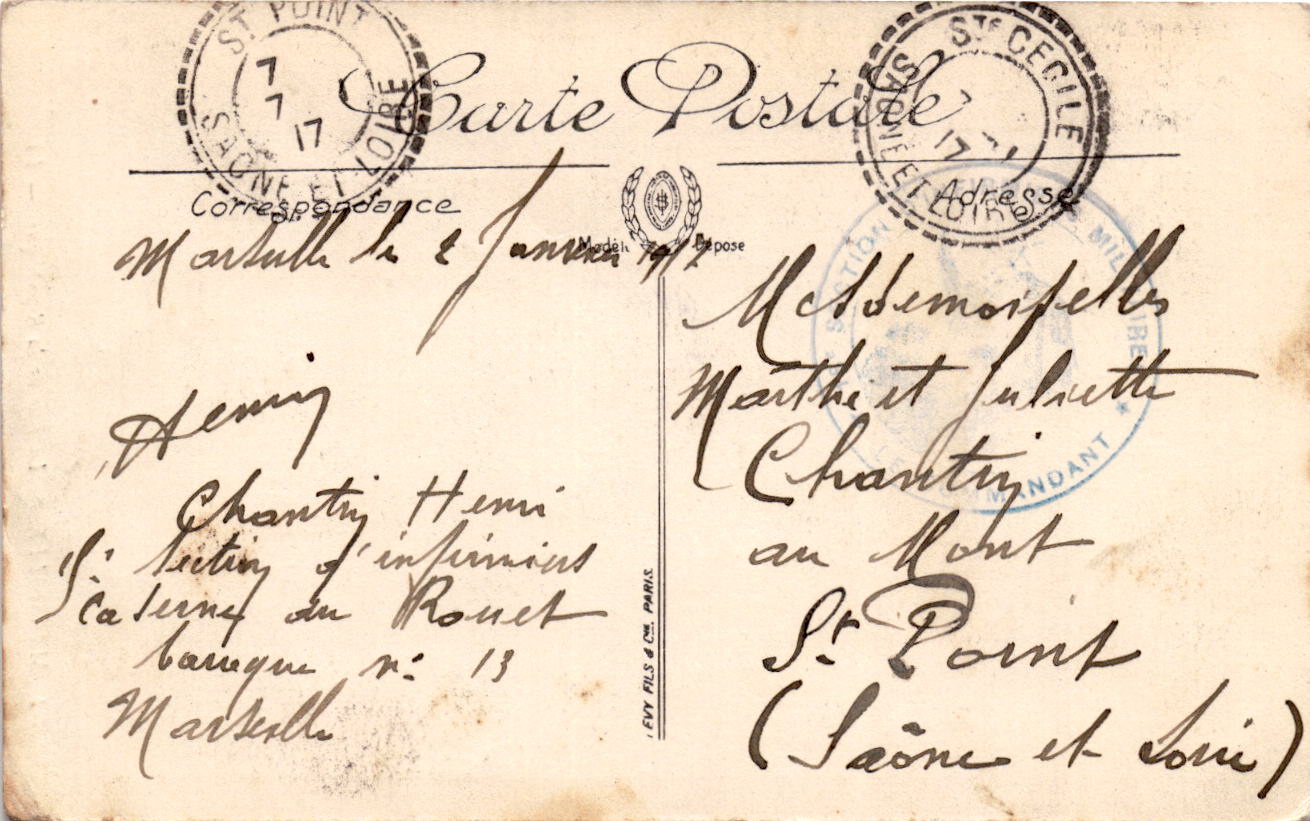 ST POINT
7
7
17
SAONE-ET-LOIRE
STE CECILE
17
SAONE ET LOIRE
Carte Postale
Correspondance
Adresse
Modèle Déposé
Marseille le 2 Janvier 1917
Henri
Chantin Henri
Section d'infirmiers
Caserne du Rouet
baraque n: 13
Marseille
LEVY FILS & Cie. PARIS.
SECTION MILITAIRE
LE COMMANDANT
Mesdemoiselles
Marthe et Juliette
Chantin
au Mont
St. Point
(Saône et Loire)